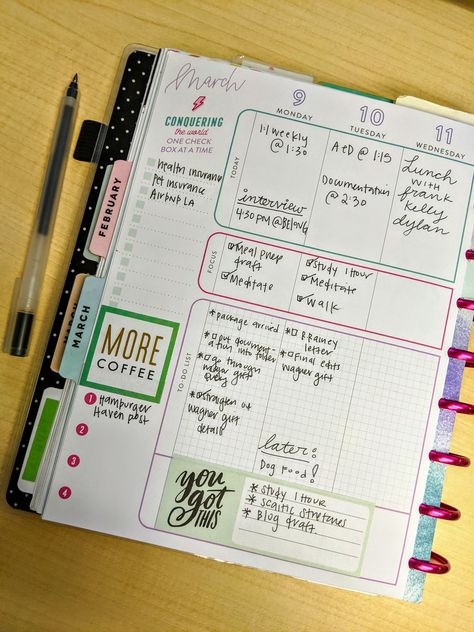 March
CONQUERING
the world
ONE CHECK
BOX AT A TIME
Health insurance
Pet insurance
Airbnb LA
FEBRUARY
MARCH
MORE
COFFEE
1 Hamburger
Haven post
2
3
4
9
MONDAY
10
TUESDAY
11
WEDNESDAY
TODAY
1:1 weekly
@ 1:30
interview
4:30 PM @BELONG
A+D @ 1:15
Documentation
@ 2:30
Lunch
with
frank
Kelly
dylan
FOCUS
Meal prep
draft
Meditate
Study 1 Hour
Meditate
Walk
TO-DO LIST
*package arrived
*put document-
ation into folder
*go through
wagner gift
*straighten out
wagner gift
details
*Brainey
letter
*Final edits
wagner gift
later:
Dog Food!
you
got
THIS
* Study 1 Hour
* Sciatic Stretches
* Blog draft